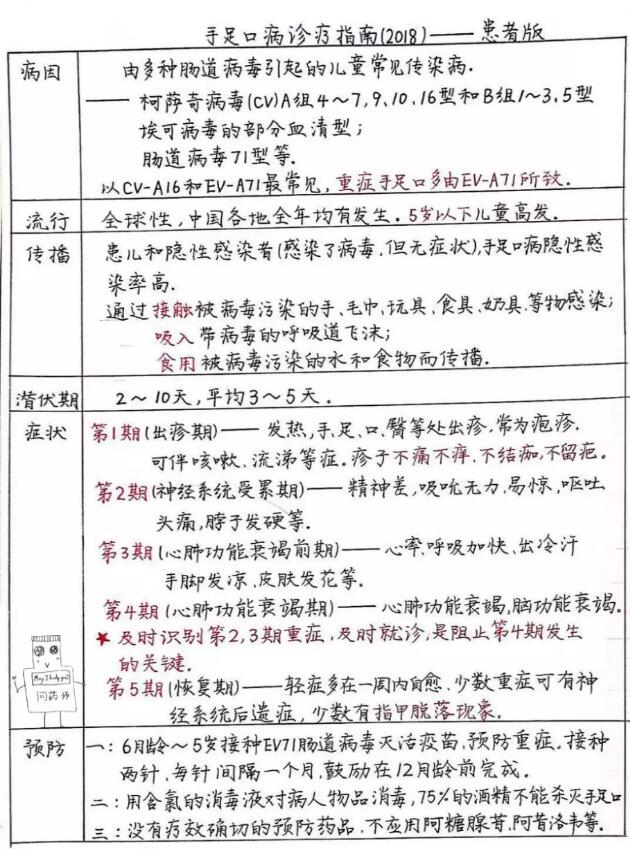 手足口病诊疗指南(2018)——患者版
病因
由多种肠道病毒引起的儿童常见传染病.
——柯萨奇病毒(CV)A组4～7,9、10、16型和B组1～3、5型
埃可病毒的部分血清型;
肠道病毒71型等.
以CV-A16和EV-A71最常见,重症手足口多由EV-A71所致.
流行
全球性,中国各地全年均有发生.5岁以下儿童高发.
传播
患儿和隐性感染者(感染了病毒,但无症状),手足口病隐性感
染率高.
通过接触被病毒污染的手、毛巾、玩具、食具、奶具、等物感染;
吸入带病毒的呼吸道飞沫;
食用被病毒污染的水和食物而传播.
潜伏期
2～10天,平均3～5天.
症状
第1期(出疹期)——发热,手、足、口、臀等处出疹,常为疱疹.
可伴咳嗽、流涕等症.疹子不痛不痒、不结痂,不留疤.
第2期(神经系统受累期)——精神差,吸吮无力、易惊,呕吐
头痛,脖子发硬等.
第3期(心肺功能衰竭前期)——心率、呼吸加快、出冷汗
手脚发凉、皮肤发花等.
第4期(心肺功能衰竭期)——心肺功能衰竭,脑功能衰竭.
★及时识别第2,3期重症,及时就诊,是阻止第4期发生
的关键.
第5期(恢复期)——轻症多在一周内自愈.少数重症可有神
经系统后遗症,少数有指甲脱落现象.
问药师
预防
一:6月龄～5岁接种EV71肠道病毒灭活疫苗,预防重症.接种
两针,每针间隔一个月,鼓励在12月龄前完成.
二:用含氯的消毒液对病人物品消毒,75%的酒精不能杀灭手足口
三:没有疗效确切的预防药品.不应用阿糖腺苷、阿昔洛韦等.